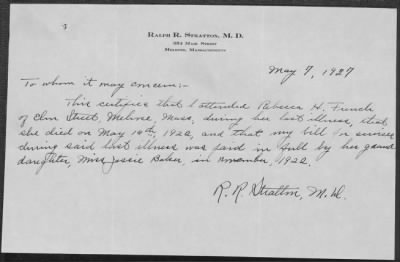 RALPH R. STRATTON, M. D.
MAIN STREET
MELROSE, MASSACHUSETTS
May 7, 1927
To whom it may concern:-
This certifies that I attended Rebecca H. French
of Elm Street, Melrose, Mass., during her last illness, that
she died on May 19th, 1922, and that my bill for services
during said last illness was paid in full by her grand
daughter, Miss Jessie Baker, in November, 1922.
R. R. Stratton, M.D.